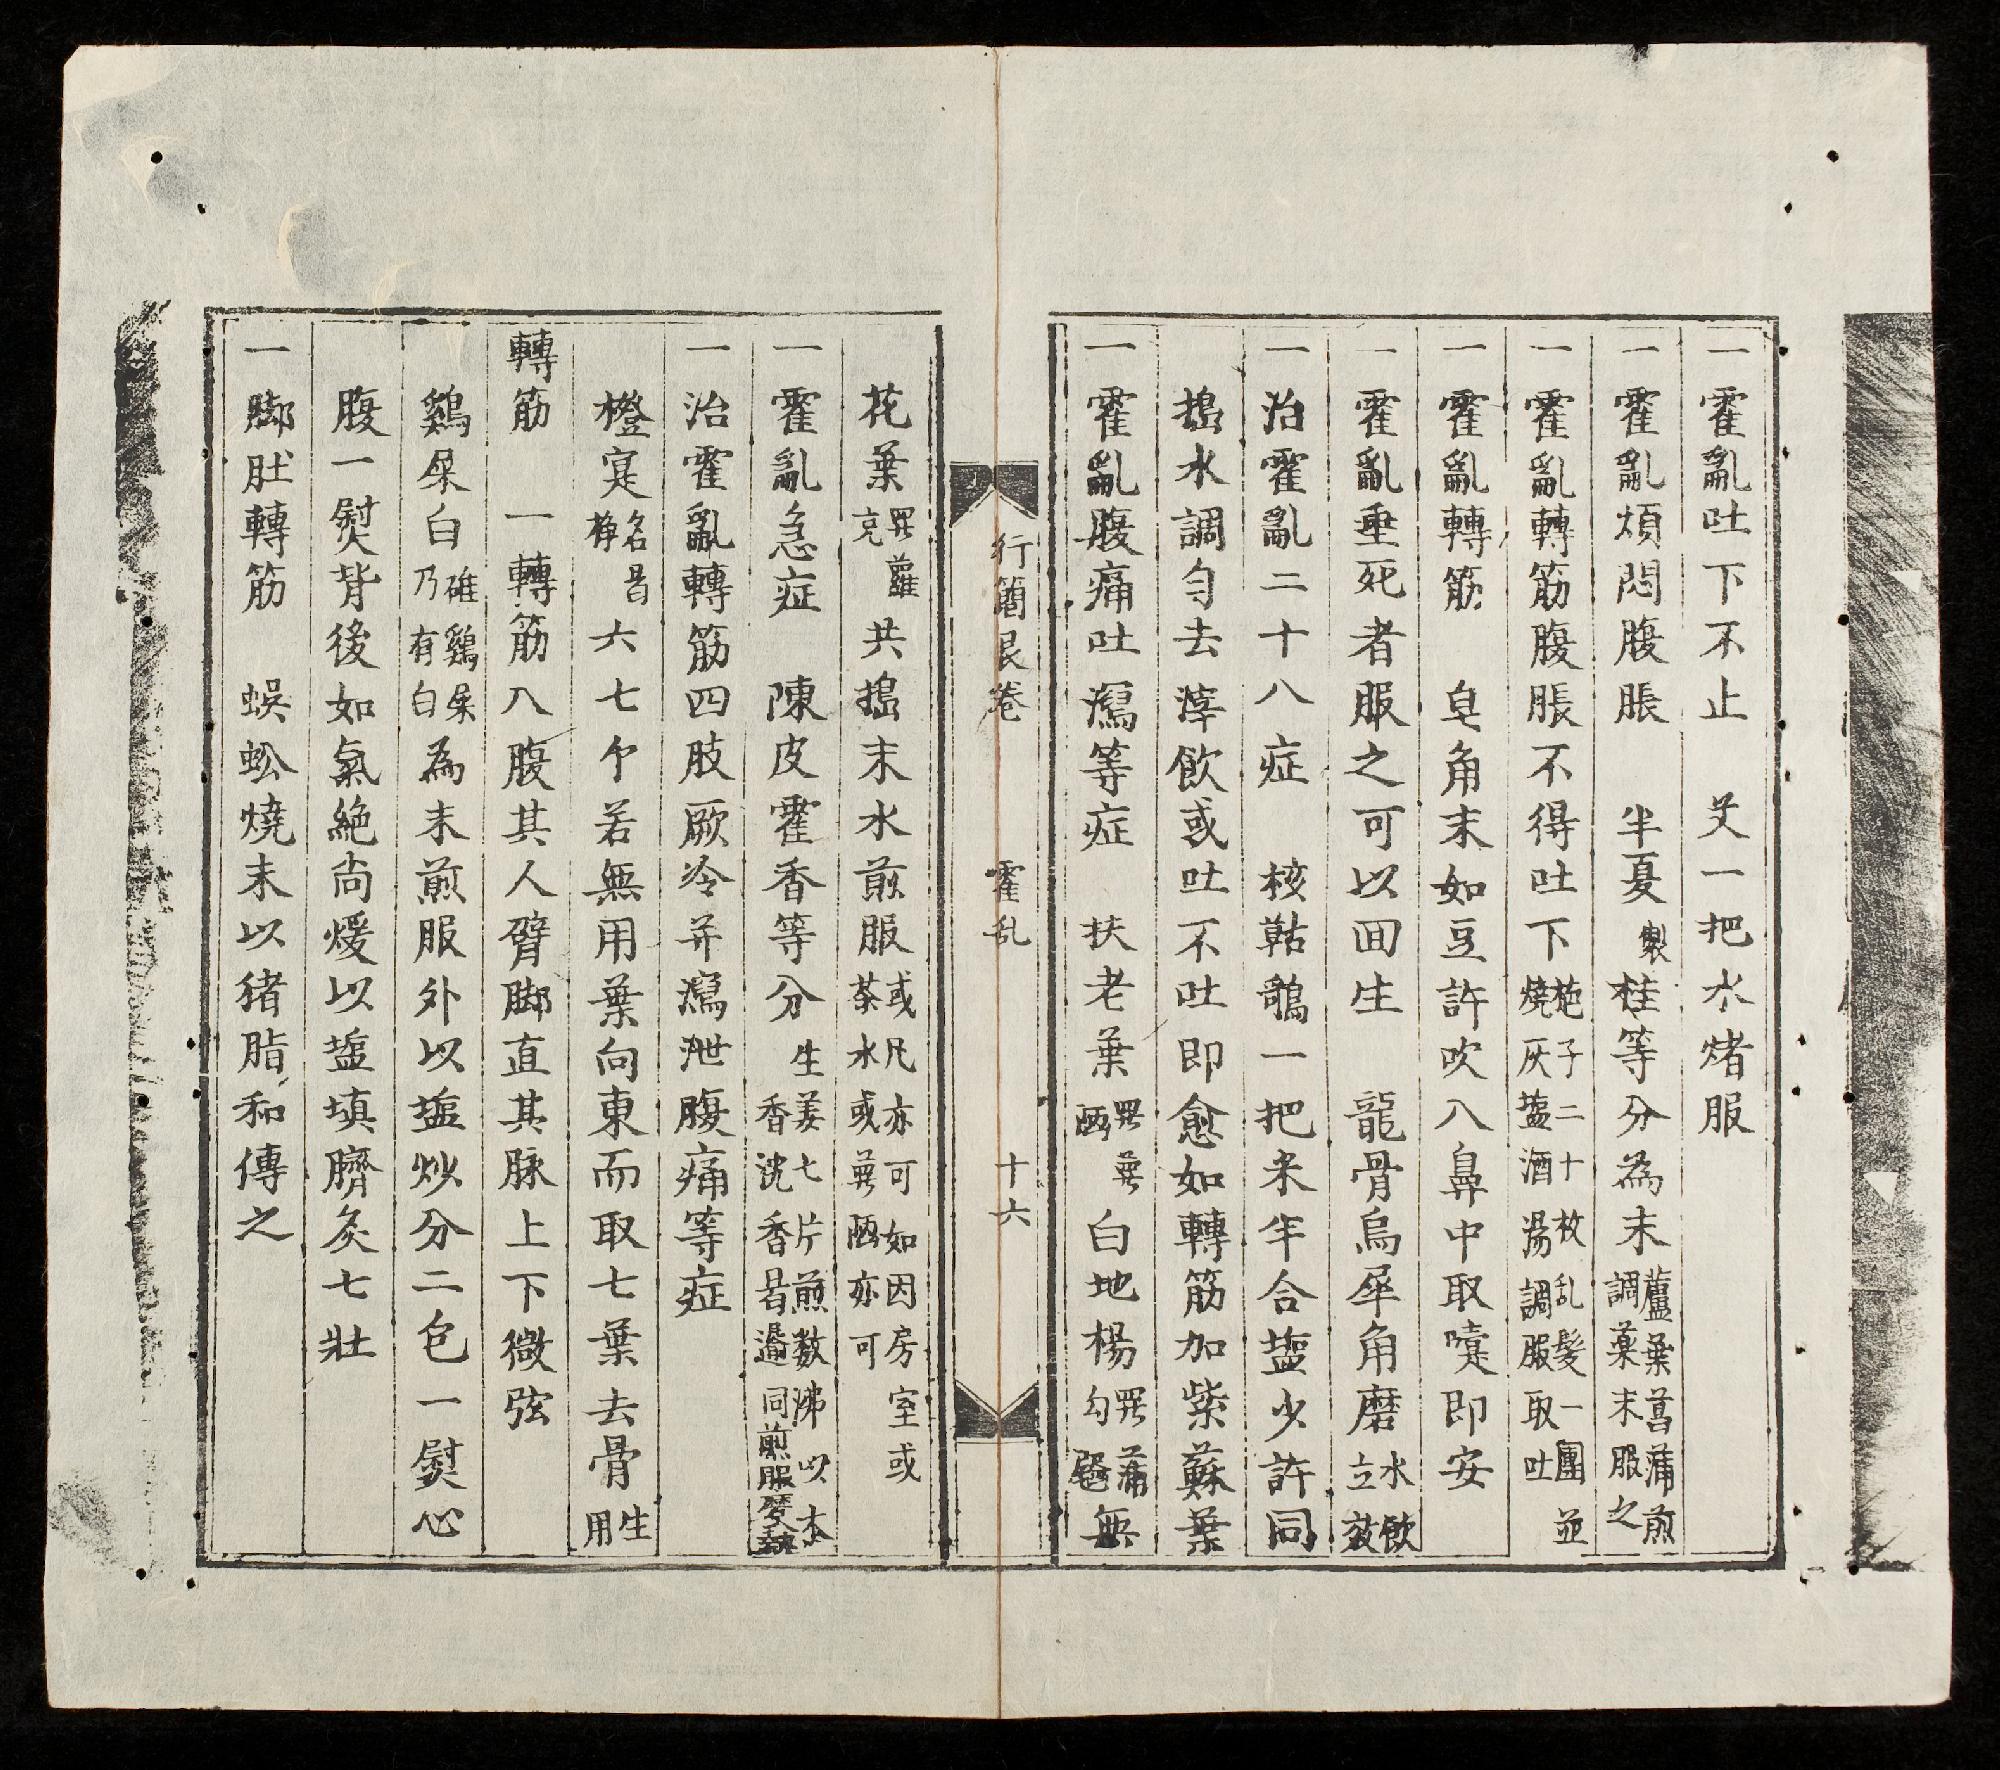 一霍亂吐下不止　艾一把水煮服
一霍亂煩悶腹脹　半夏製桂等分為末蘆葉菖蒲煎調藥末服之
一霍亂轉筋腹脹不得吐下栀子二十枚乱髮一團並燒灰塩酒湯調服取吐
一霍亂轉筋　皂角末如豆許吹入鼻中取嚔即安
一霍亂垂死者服之可以囬生　龍骨烏犀角磨水飲立效
一治霍亂二十八症　核鞊鶻一把米半合塩少許同
搗水調勻去滓飲或吐不吐即愈如轉筋加紫蘇葉
一霍亂腹痛吐瀉等症　扶老葉白地楊無
行簡艮卷　霍乱　十六
花葉共搗末水煎服或凡亦可如因房室或茶水或亦可
一霍亂急症　陳皮霍香等分生姜七片煎数沸以木香沈香同煎服
一治霍亂轉筋四肢厥冷并瀉泄腹痛等症
橙寔名六七个若無用葉向東而取七葉去骨生用
轉筋　一轉筋入腹其人臂脚直其脉上下微弦
鷄屎白碓鷄屎乃有白為末煎服外以塩炒分二包一熨心
腹一熨背後如氣絶尚煖以塩填臍灸七壯
一脚肚轉筋　蜈蚣燒末以猪脂和傅之